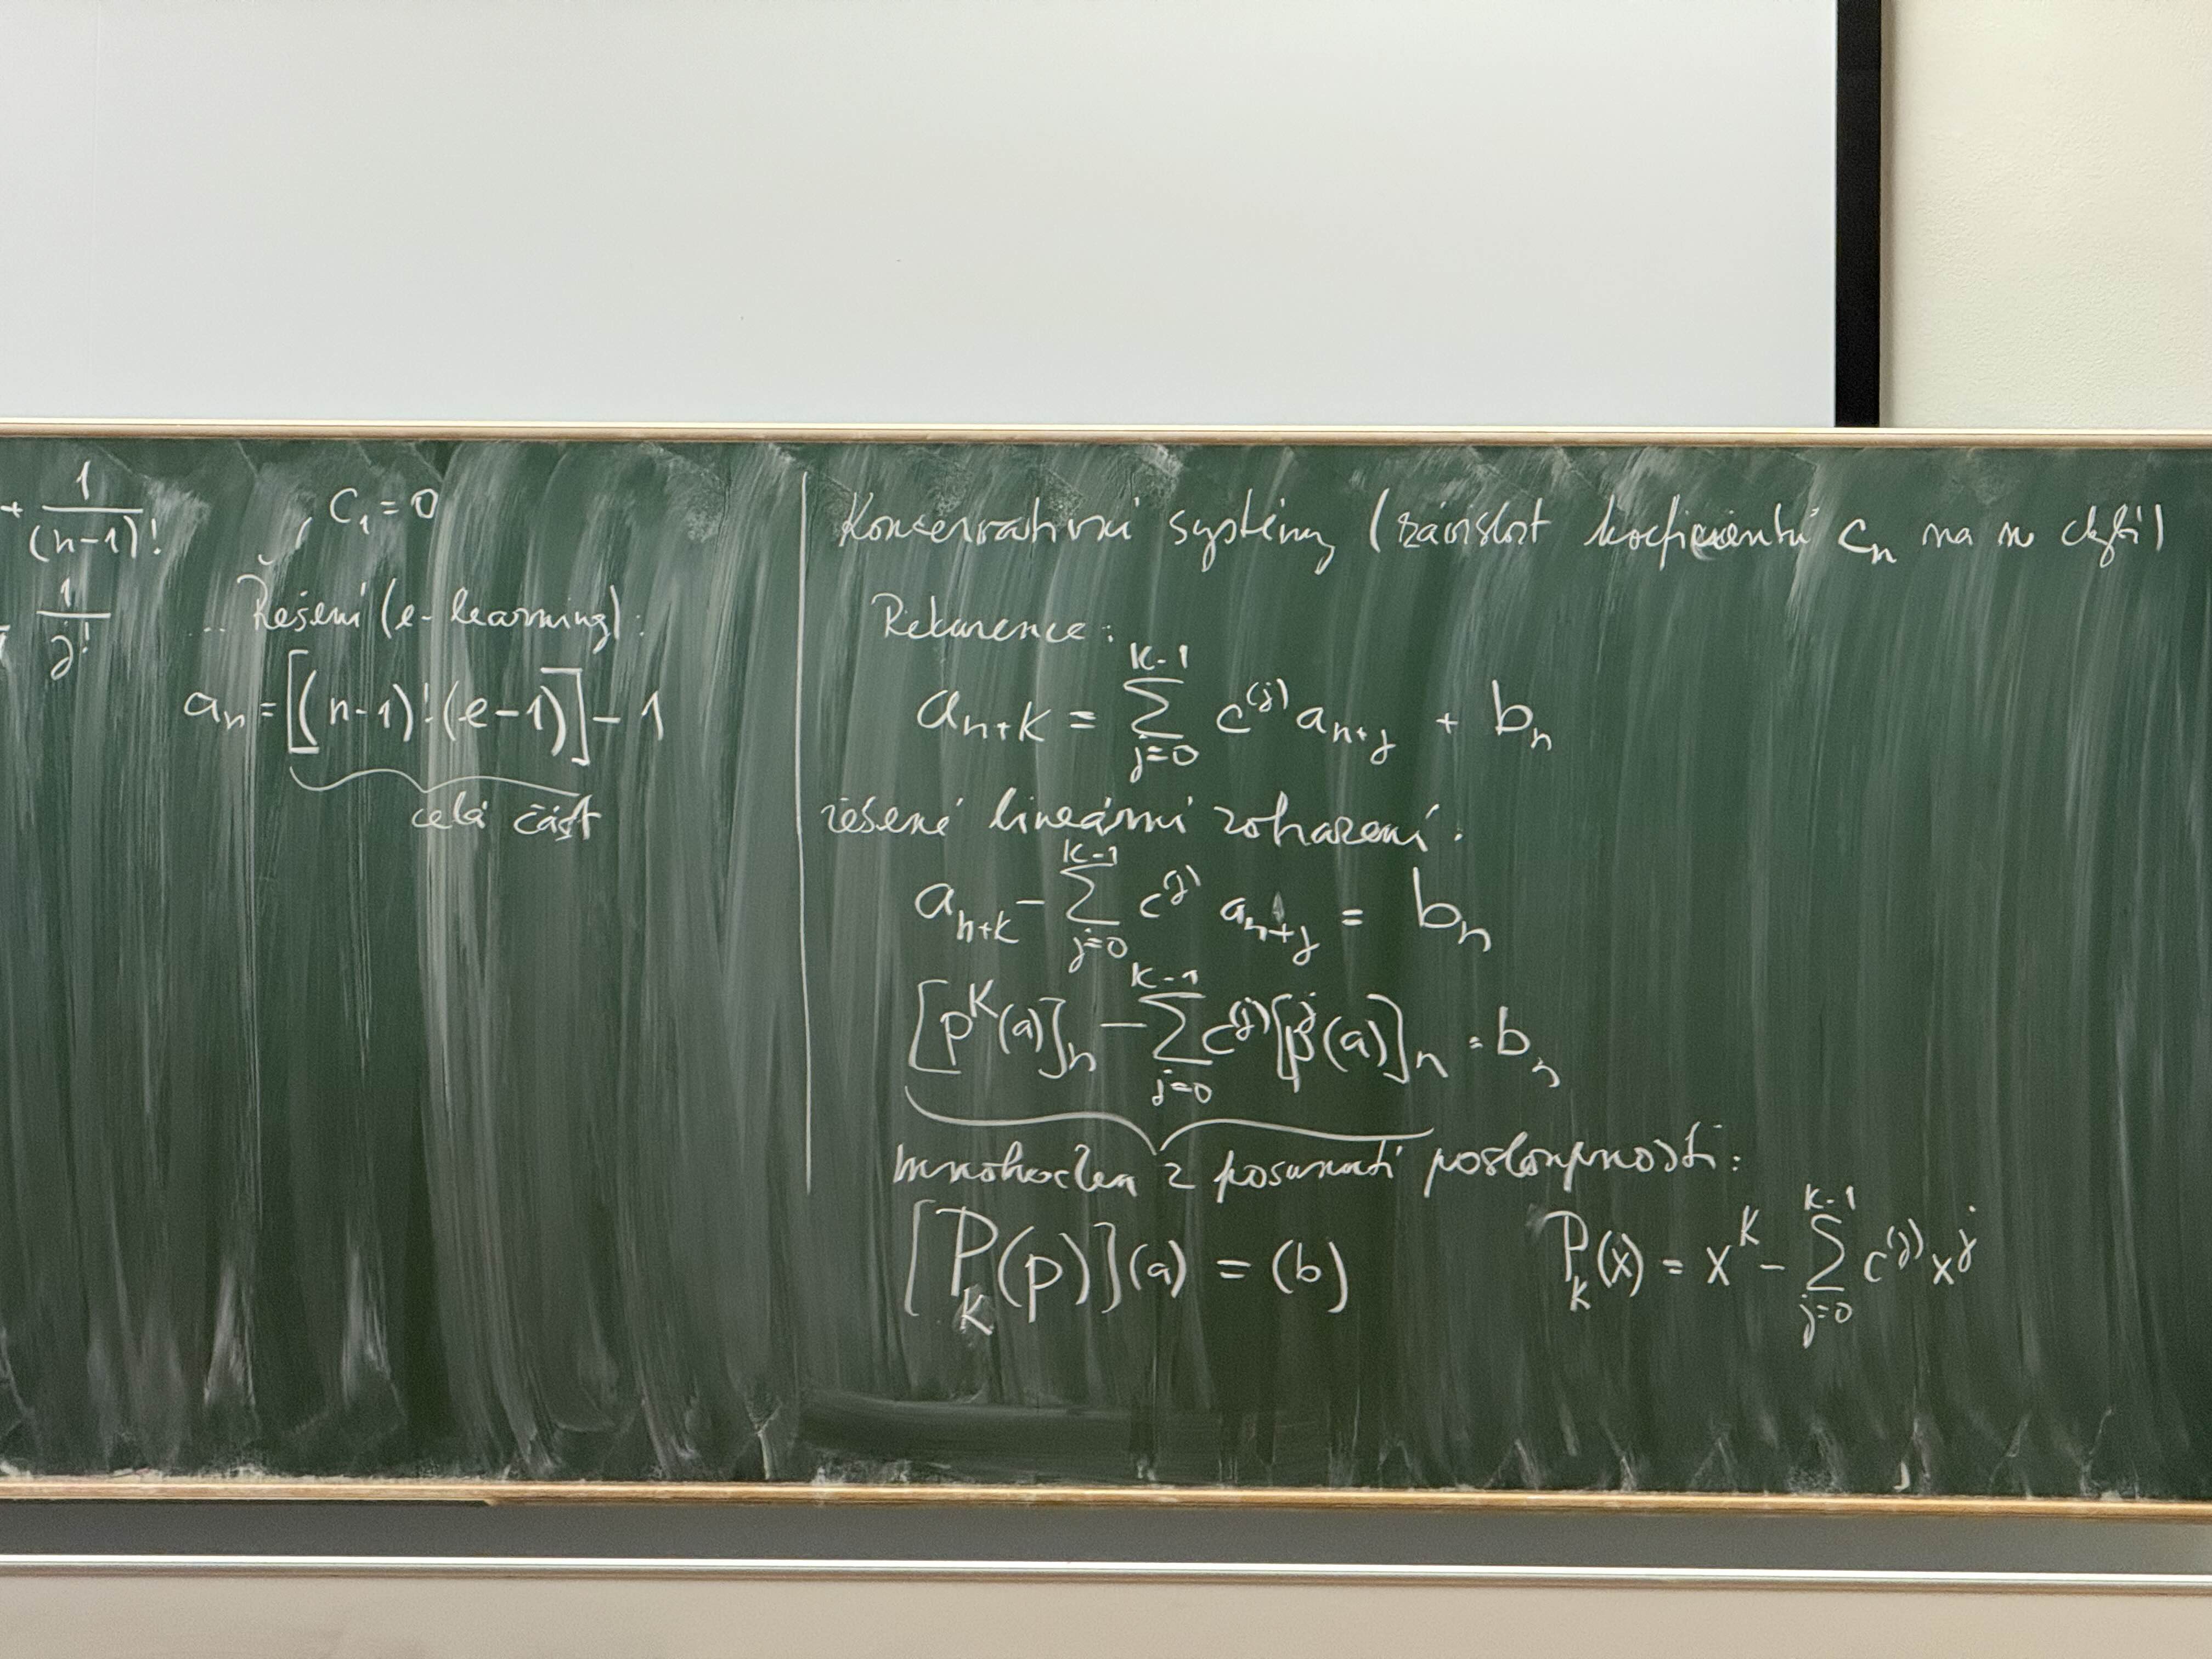 + 1/(n-1)! , C₁ = 0
1/j! ... Řešení (e-learning):
aₙ = [(n-1)!(e-1)] - 1
celá část
Konservativní systémy (závislost koeficientů cₙ na n chybí)
Rekurence:
a_{n+k} = \sum_{j=0}^{K-1} c^{(j)} a_{n+j} + b_n
řešené lineární zobrazení:
a_{n+k} - \sum_{j=0}^{K-1} c^{(j)} a_{n+j} = b_n
[p^K(a)]_n - \sum_{j=0}^{K-1} c^{(j)} [p^j(a)]_n = b_n
mnohočlen z posunutí posloupnosti:
[P_K(p)](a) = (b) P_k(x) = x^K - \sum_{j=0}^{K-1} c^{(j)} x^j